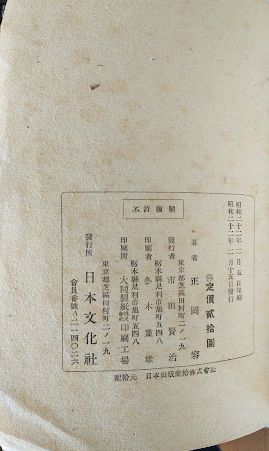 不許複製
昭和二十二年二月五日印刷
昭和二十二年二月十五日發行
定價貳拾圓
著者 正岡容
東京都芝區田村町二ノ一九
發行者 市田賢治
栃木縣足利市旭町五四八
印刷者 冬木重雄
栃木縣足利市旭町五四八
印刷所 大同製紙株式會社印刷工場
東京都芝區田村町二ノ一九
發行所 日本文化社
會員番號A二一四〇二六
配給元 日本出版配給株式會社